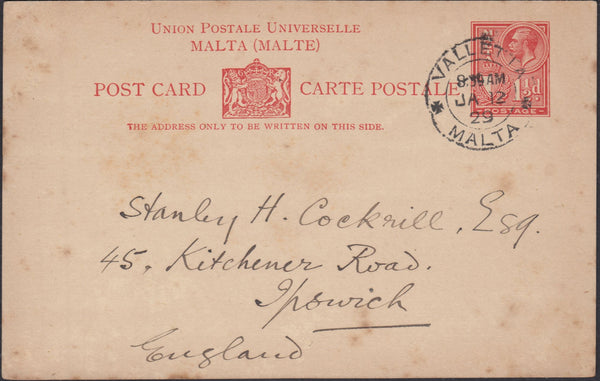 UNION POSTALE UNIVERSELLE
MALTA (MALTE)
POST CARD CARTE POSTALE
THE ADDRESS ONLY TO BE WRITTEN ON THIS SIDE.
1½d
POSTAGE
VALLETTA
AM
JA 12
29
MALTA
Stanley H. Cockrill, Esq.
45. Kitchener Road.
Ipswich
England